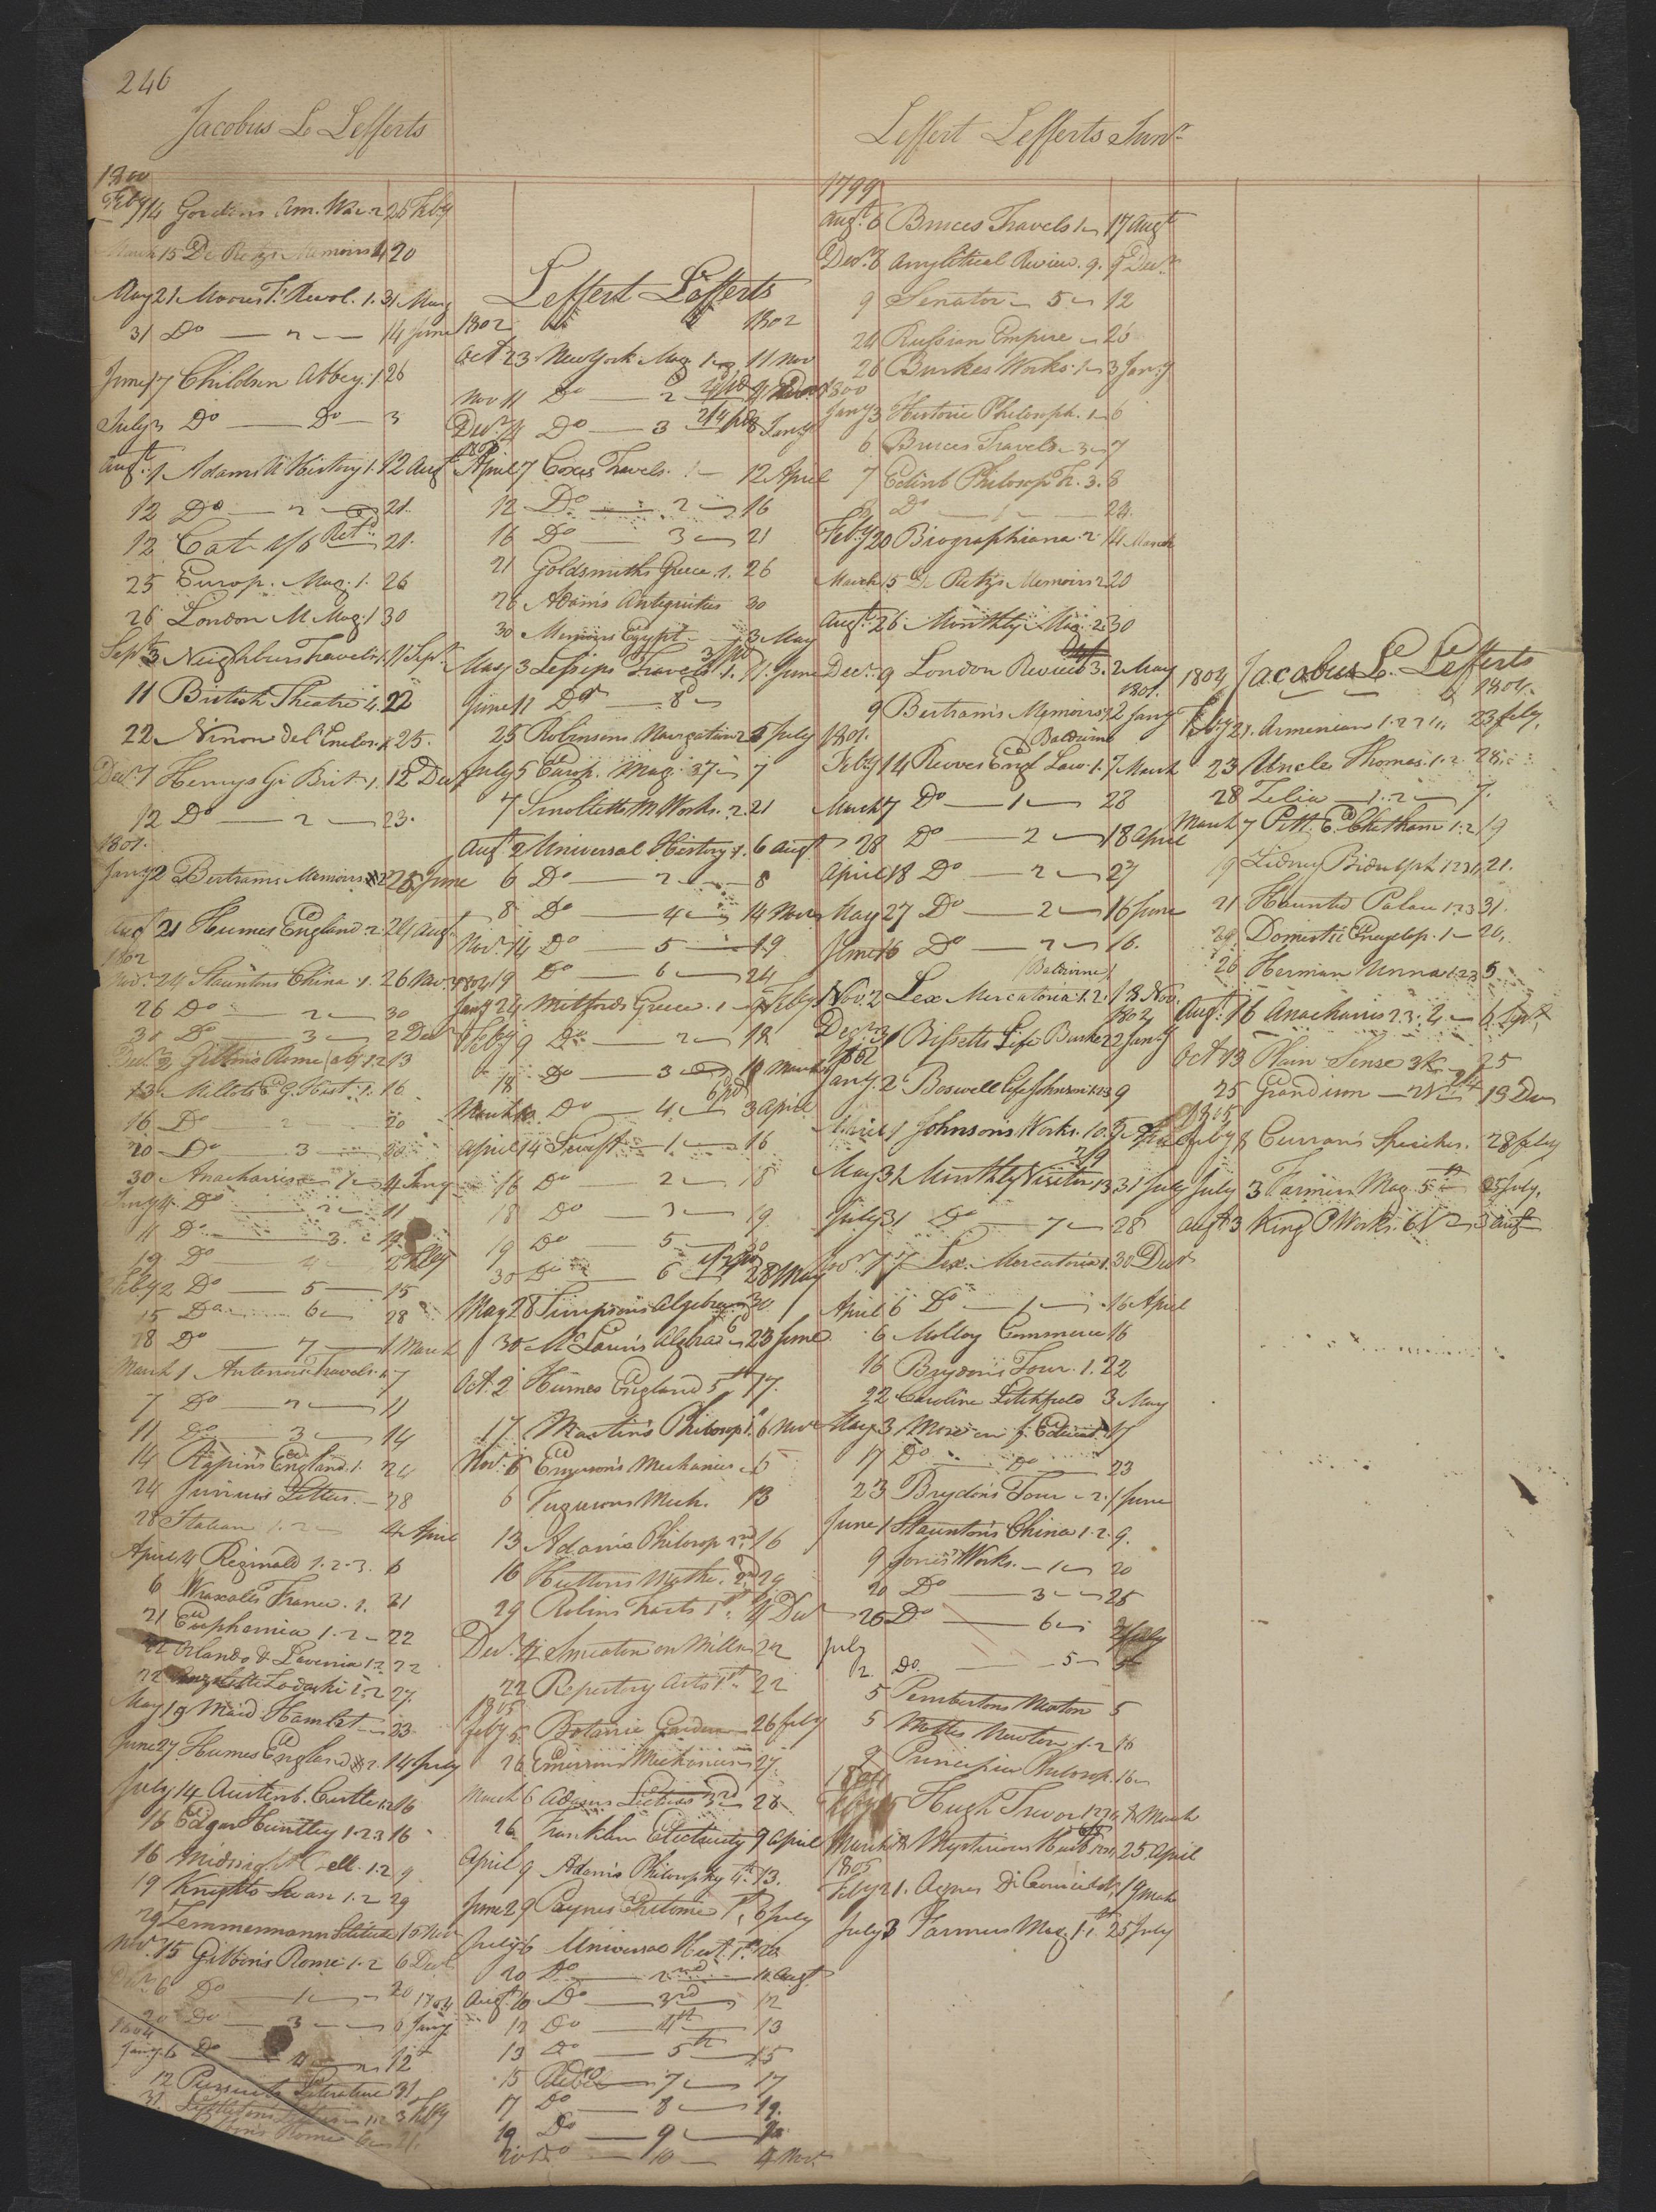 246
Jacobus L Lefferts
1800
Feby 14 Gordons Am. War 2 25 Feby
March 15 De Retz's Memoirs 4 20
May 21 Moores F. Revol. 1. 31 May
31 Do 2 14 June
June 17 Children Abbey. 1 26
July 3 Do Do 3
Augt. 1 Adams N History 1. 12 Augt
12 Do 2 21.
12 Cat 1/6 Retd. 21.
25 Europ. Mag. 1. 26
26 London M Mag. 1 30
Sept 3 Neighburs Travels 1. 11 Sept.
11 British Theatre 4. 22
22 Ninon del Enclos. 1. 25.
Decr. 7 Henrys Gr Brit 1. 12 Decr
12 Do 2 23.
1801.
Jany 2 Bertrams Memoirs 2 25 June
Augt 21 Humes England 2. 24 Augt.
1802
Novr. 24 Stauntons China 1. 26 Novr.
26 Do 2 30
30 Do 3 2 Decr
Decr. 2 Gibbons Rome 1.2 13
13 Millots G. Hist. 1. 16
16 Do 2 20
20 Do 3 30
30 Anacharsis 1 4 Jany
Jany 4. Do 2 11
11 Do 3. 19
19 Do 4 2 Feby
Feby 2 Do 5 15
15 Do 6 28
28 Do 7 1 March
March 1 Antenors Travels 1. 7
7 Do 2 11
11 Do 3 14
14 Rapins England. 1. 24
24 Junius Letters. 28
28 Italian 1.2 4 April
April 4 Reginald 1.2.3. 6
6 Wraxalls France. 1. 21
21 Euphemia 1.2 22
22 Orlando & Lavinia 1.2 22
22 Lodoski 1.2 27.
May 19 Maid Hamlet 23
June 27 Humes England 2. 14 July
July 14 Austenb. Castle 1.2 16
16 Edgar Huntley 1.2.3 16
16 Midnight Bell. 1.2 9
19 Knights Swan 1.2 29
29 Zemmermann Solitude 15 Nov
Novr. 15 Gibbons Rome 1.2 6 Decr
Decr. 6 Do 1 20
20 Do 3 6 Jany
1804
Jany 6 Do 4 12
12 Pursuits Literature 31
31 1.2 3 Feby
Rome 6 21.
Leffert Lefferts
1802 1802
Oct 23 New York Mag 1 11 Nov
Nov 11 Do 2 4 Decr
Decr. 4 Do 3 8 Jany
April 7 Coxes Travels. 1 12 April
12 Do 2 16
16 Do 3 21
21 Goldsmiths Greece. 1. 26
26 Adams Antiquities 30
30 Memoirs Egypt 3 May
May 3 Lesseps Travels 1. 11 June
June 11 Do 8
25 Robinsons Navigation 2 5 July
July 5 Europ. Mag. 37 7
7 Smolletts M Works. 2. 21
Augt 2 Universal History 1. 6 Augt
6 Do 2 8
8 Do 4 14 Novr
Novr. 14 Do 5 19
19 Do 6 24
Jany 24 Mitfords Greece. 1 9 Feby
Feby 9 Do 2 18
18 Do 3 10 March
March 10 Do 4 6pd 3 April
April 14 Swift 1 16
16 Do 2 18
18 Do 3 19
19 Do 5 30
30 Do 6 28 May
May 28 Simpsons Algebra 30
30 McLaurin Algebra 23 June
Oct. 2 Humes England 5th 17.
17 Martins Philosop 1. 6 Novr
Novr. 6 Emersons Mechanics 6
6 Fugusons Mech. 13
13 Adams Philosop 2nd 16
16 Huttons Mathe. 2d 29
29 Robins Tracts 1st. 4 Decr
Decr. 4 Smeaton on Mills 22
22 Repertory Arts 1st 22
1805
Feby 5 Botanic Garden 26 Feby
26 Emersons Mechanics 27
March 6 Adams Lectures 3rd 26
26 Franklin Electricity 9 April
April 9 Adams Philosophy 4th. 13.
June 29 Paynes Epitome 1st 6 July
July 6 Universal Hist. 1st 20
20 Do 2nd 10 Augt
Augt 10 Do 3rd 12
12 Do 4th 13
13 Do 5th 15
15 Do 7 17
17 Do 8 19.
19 Do 9 20
20 Do 10 4 Novr.
Leffert Lefferts Junr.
1799
Augt. 6 Bruces Travels 1 17 Augt
Decr. 8 Anylitical Review. 9. 9 Decr.
9 Senator 5 12
24 Russian Empire 26
26 Burkes Works. 1 3 Jany
1800
Jany 3 Historic Philosoph. 1 6
6 Bruces Travels 3 7
7 Edinb Philosop Tr. 3. 8
8 Do 1 24
Feby 20 Biographiana 2 14 March
March 15 De Retz's Memoirs 2 20
Augt. 26 Monthly Mag. 2. 30
Decr. 9 London Review 3. 2 May
1801.
9 Bertrams Memoirs 2 Jany
1801. Baldwine
Feby 14 Reeves Engl Law. 1. 7 March
March 7 Do 1 28
28 Do 2 18 April
April 18 Do 2 27
May 27 Do 2 16 June
June 16 Do 2 16.
(Baldwine)
Nov. 2 Lex Mercatoria 1.2. 18 Nov.
1802
Decr. 31 Bissetts Life Burke 2 2 Jany
1802
Jany. 2 Boswell Life Johnson 1.2.3 9
April 1 Johnsons Works. 10.
May 31 Monthly Visitor 13. 31 July
July 31 Do 7 28
Novr. 17 Lex Mercatoria 1. 30 Decr.
April 6 Do 1 16 April
6 Molloy Commerce 16
16 Brydons Tour. 1. 22
22 Caroline Litchfield 3 May
May 3 More on f. Educat. 17
17 Do Do 23
23 Brydons Tour 2. 1 June
June 1 Staunton's China 1.2. 9.
9 Jones Works. 1 20
20 Do 3 25
26 Do 6 2 July
July
2. Do. 5 5
5 Pembertons Newton 5
5 Mottes Newton 1.2 18
9 Principia Philosop. 16
1804
Hugh Trevor 1.2.3.4 8 March
March 8 Mysterious Husb. 25 April
1805
Feby 21. Agnes Di 19 Mar
July 3 Farmers Mag. 1. 25 July
1804 Jacobus L. Lefferts
1804.
Feby 21. Armenian 1.2 23 Feby.
23 Uncle Thomas. 1.2. 28.
28 Zelia 1.2 7.
March 7 Pitt E. Chatham 1.2 19
19 Sidney Bidulph 1.2.3 21.
21 Haunted Palace 1.2.3 31.
29. Domestic Encyclop. 1 20.
26 Herman Unna 1.2.3 5
Augt. 16 Anacharsis 2.3.4 6 Sept
Oct 13 Plain Sense 25
25 Grandison 13 Decr
1805
Feby 8 Curran's Speeches. 28 Feby
July 3 Farmers Mag. 5th 25 July.
Augt 3 King P Works. 6 3 Augt